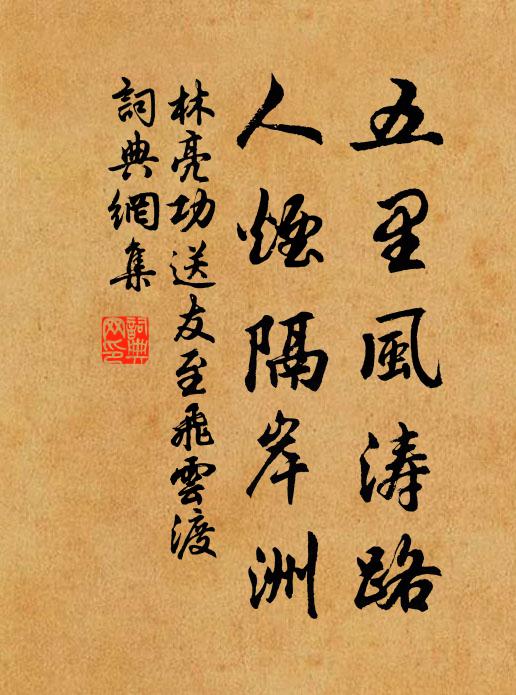 五里風涛路
人煙隔岸洲
林亮功送友至飛雲渡
詞典網集
詞典網印